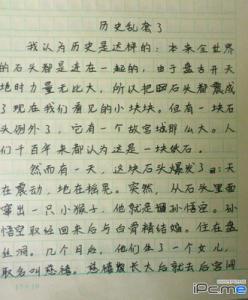 历史乱套了
我认为历史是这样的：本来全世界
的石头都是连在一起的，由于盘古开天
地时力量无比大，所以把石头都震成
了现在我们看见的小块块。但有一块石
头例外了，它有一个故宫城那么大。人
们千百年来都认为这是一块铁石。
然而有一天，这块石头爆发了：天
在震动，地在摇晃。突然，从石头里面
窜出一只小猴子，他就是孙悟空。孙
悟空取经回来后与白骨精结婚。住在盘
丝洞。几个日后，他们生了一个女儿，
取名叫慈禧。慈禧长大后就去后宫
iPcme